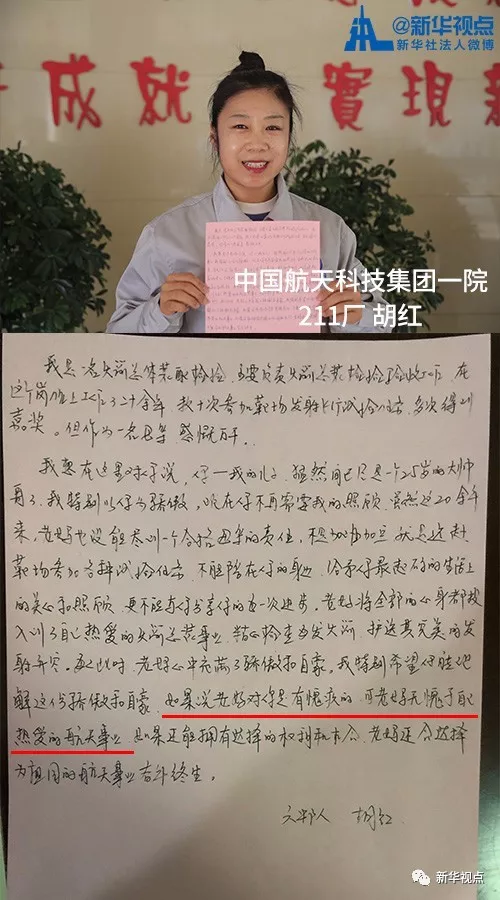 @新华视点
新华社法人微博
成就 實現新
中国航天科技集团一院
211厂 胡红
我是一名火箭总体装配检验，主要负责火箭总装检验验收工作，在
这个岗位上工作了二十余年，数十次参加靶场发射飞行试验任务，多次得到
嘉奖。但作为一名母亲感慨万千。
我想在这里对你说，仔—我的儿子，猛然间已是一个25岁的大帅
哥了，我特别以你为骄傲，现在你不再需要我的照顾，虽然这20余年
来，老妈也没能尽到一个合格母亲的责任，不是加班加点就是远赴
靶场参加各种试验任务，不能陪在你的身边，给予你最起码的生活上
的关心和照顾，更不能与你分享你的每一次进步。老妈将全部的心身都投
入到了自己热爱的火箭总装事业，精心检查每发火箭，护送其完美的发
射升空。每此时老妈心中充满了骄傲和自豪。我特别希望你能理
解这份骄傲和自豪，如果说老妈对你是有愧疚的，可老妈无愧于自己
热爱的航天事业，如果还能拥有选择的权利和机会，老妈还会选择
为祖国的航天事业奋斗终生。
胡红
新华视点